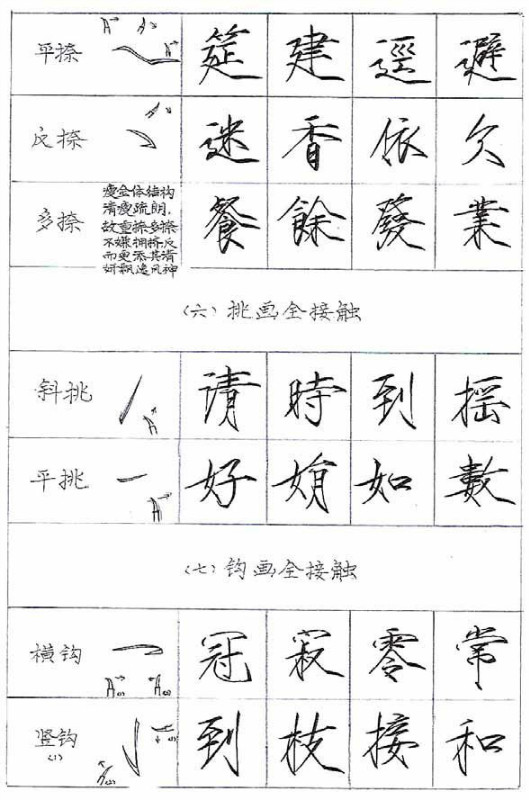 平捺 筵 建 逕 避
反捺 迷 香 依 欠
多捺
瘦金体结构
清瘦疏朗，
故重捺多捺
不嫌拥挤反
而更添其清
妍飘逸风神
餐 餘 發 業
（六）挑画全接触
斜挑 请 時 到 摇
平挑 好 如 數
（七）钩画全接触
横钩 冠 寂 零 常
竖钩 到 枝 接 和
(1)